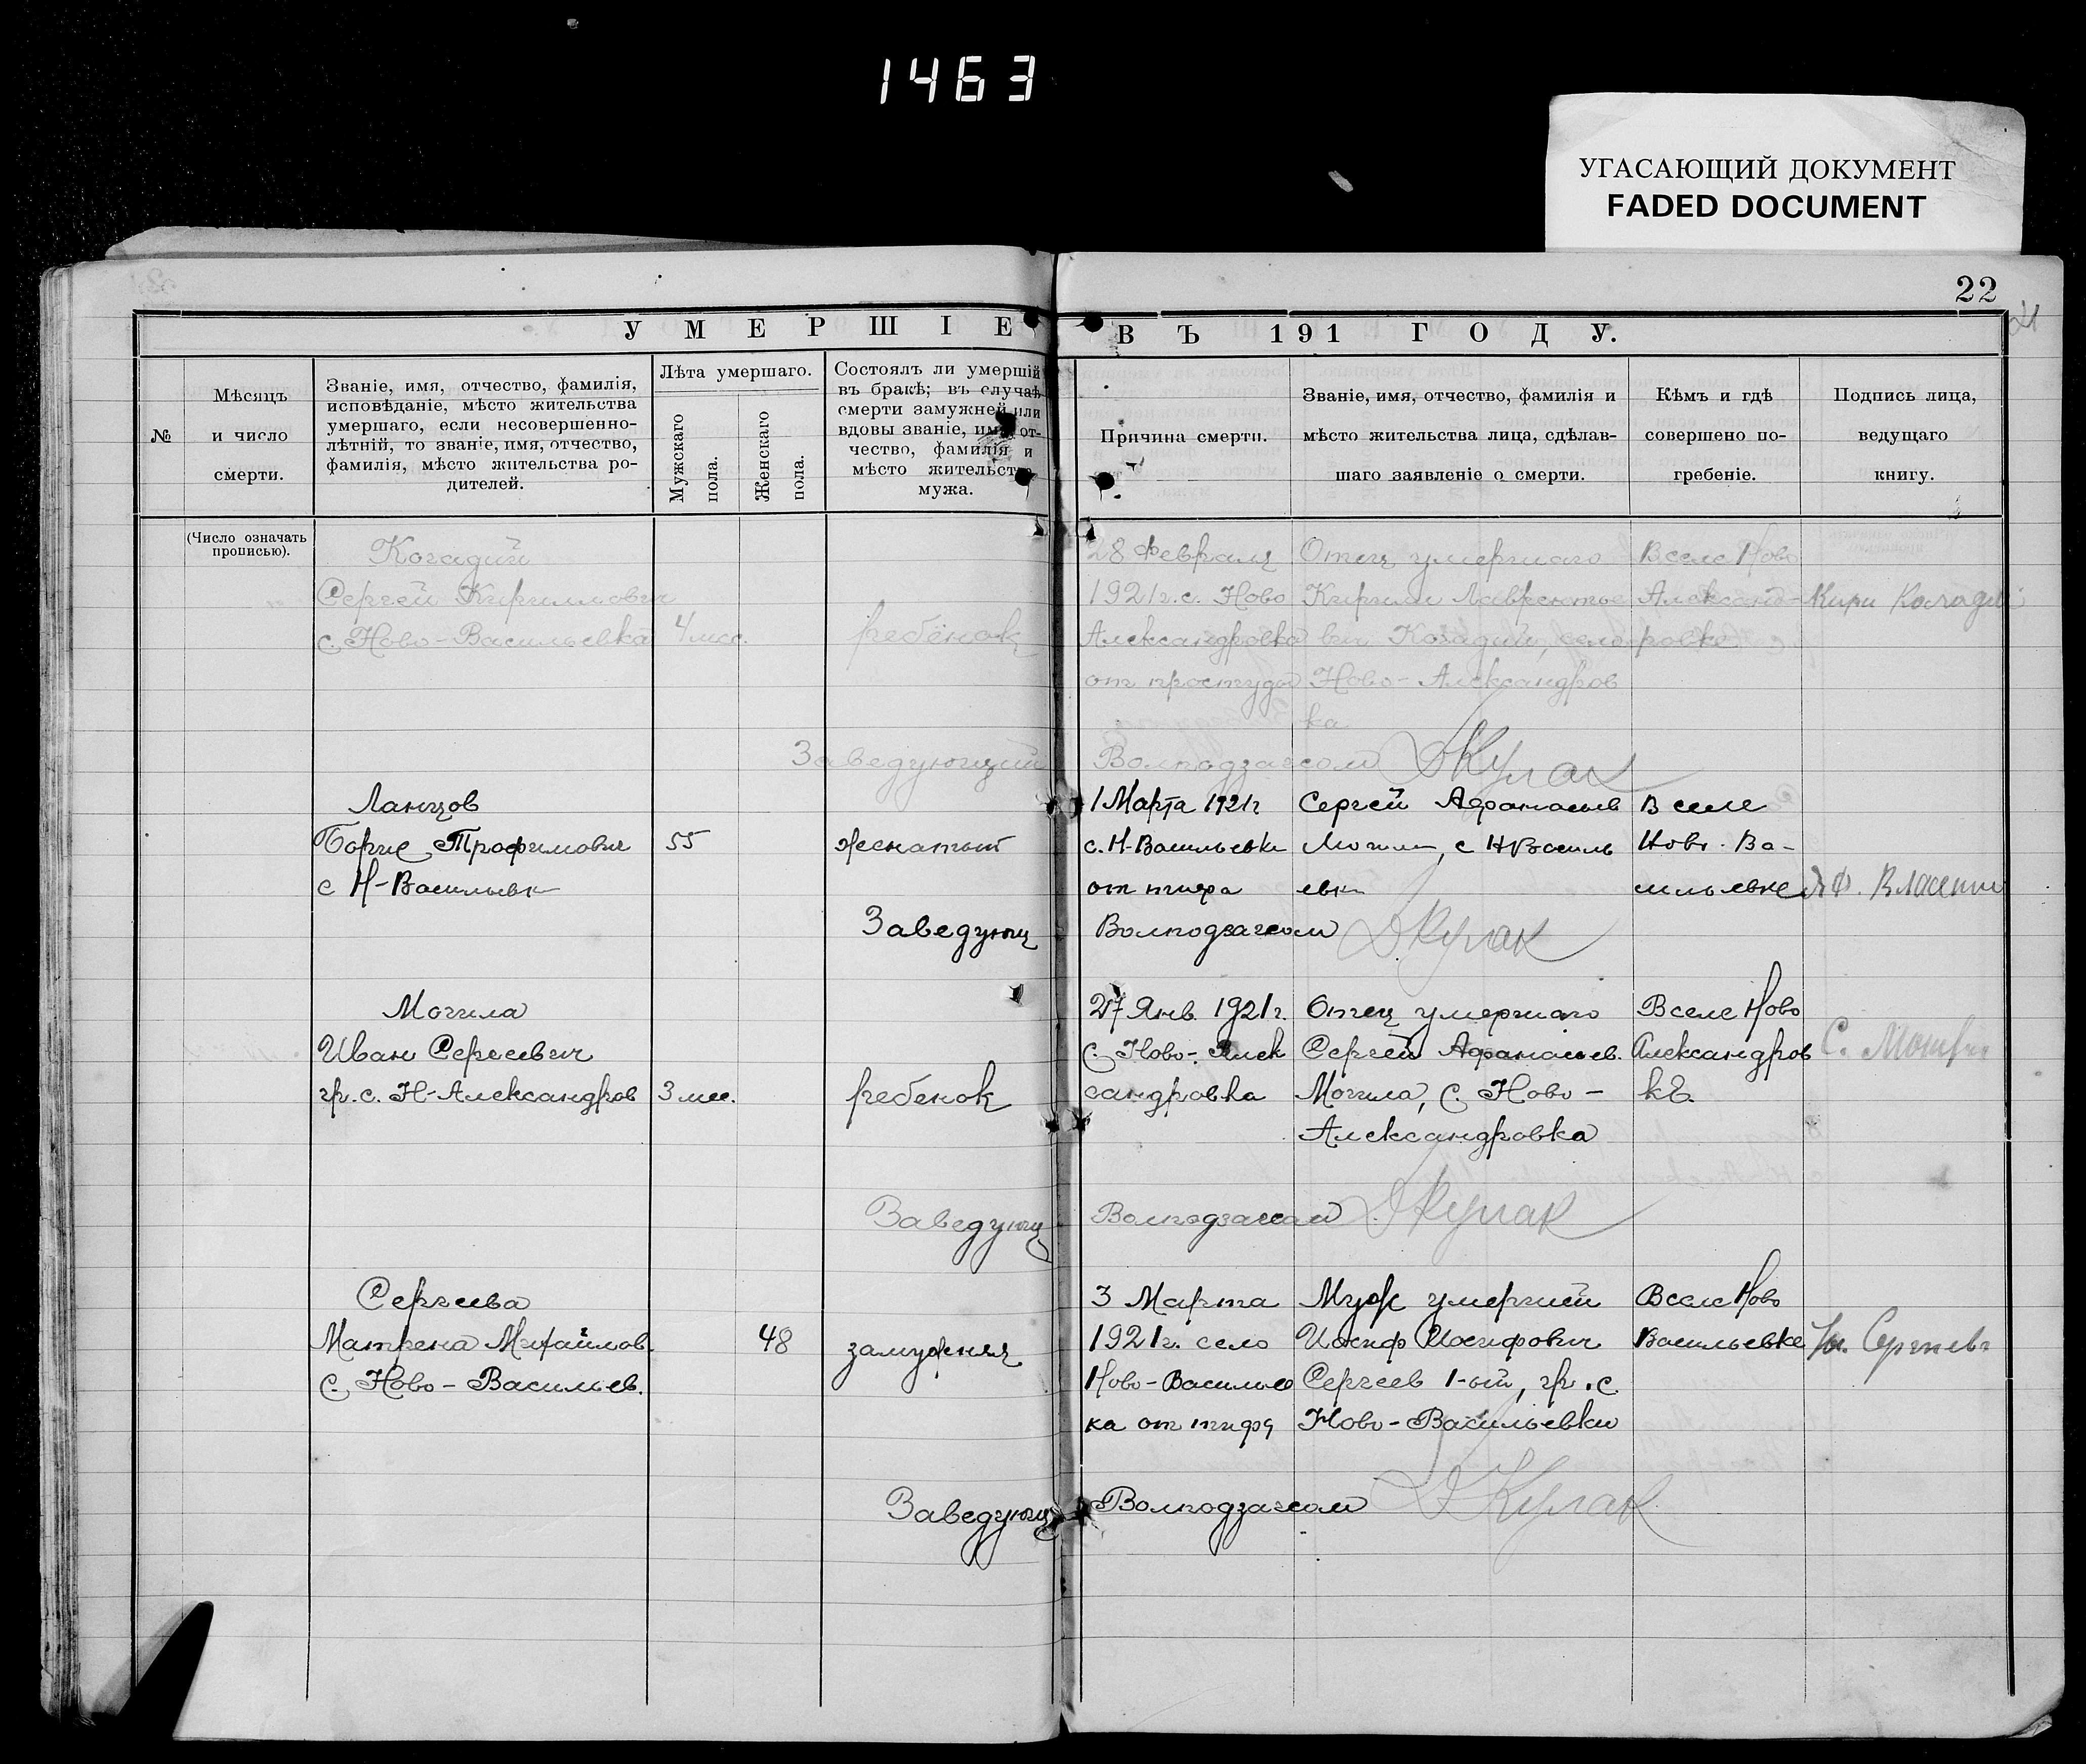 1463
УГАСАЮЩИЙ ДОКУМЕНТ
FADED DOCUMENT
22
УМЕРШІЕ ВЪ 191 ГОДУ.
№
Мѣсяцъ
и число
смерти.
Званіе, имя, отчество, фамилія,
исповѣданіе, мѣсто жительства
умершаго, если несовершенно-
лѣтній, то званіе, имя, отчество,
фамилія, мѣсто жительства ро-
дителей.
Лѣта умершаго.
Мужскаго
пола.
Женскаго
пола.
Состоялъ ли умершій
въ бракѣ; въ случаѣ
смерти замужней или
вдовы званіе, имя, от-
чество, фамилія и
мѣсто жительства
мужа.
Причина смерти.
Званіе, имя, отчество, фамилія и
мѣсто жительства лица, сдѣлав-
шаго заявленіе о смерти.
Кѣмъ и гдѣ
совершено по-
гребеніе.
Подпись лица,
ведущаго
книгу.
(Число означать
прописью).
Когадий
Сергей Кириллович
с. Ново-Васильевка
4 мес.
ребёнок
28 Февраля
1921 г. с. Ново
Александровка
от простуды
Отец умершаго
Кирилл Лавренътье
вич Когадий, село
Ново-Александров
ка
В селе Ново
Александ-
ровке
Заведующий Волподзагсом ДКулак
Ланцов
Борис Трофимович
с Н-Васильевк
55
женатый
1 Марта 1921 г
с. Н-Васильевка
от тифа
Сергей Афанасьев
Могила, с Н Василь
евк
В селе
Ново-Ва-
сильевке
Заведующ Волподзагсом ДКулак
Могила
Иван Сергеевич
гр. с. Н-Александров
3 мес.
ребенок
27 Янв. 1921 г.
с. Ново-Алек
сандровка
Отец умершаго
Сергей Афанасьев.
Могила, с. Ново-
Александровка
В селе Ново
Александров
кѣ.
Заведующ Волподзагсом ДКулак
Сергеева
Матрена Михайлов.
с. Ново-Васильев.
48
замужняя
3 Марта
1921 г. село
Ново-Васильев
ка от тифа
Муж умершей
Иосиф Иосифович
Сергеев 1-ый, гр. с.
Ново-Васильевки
В селе Ново
Васильевке
Заведующ Волподзагсом ДКулак